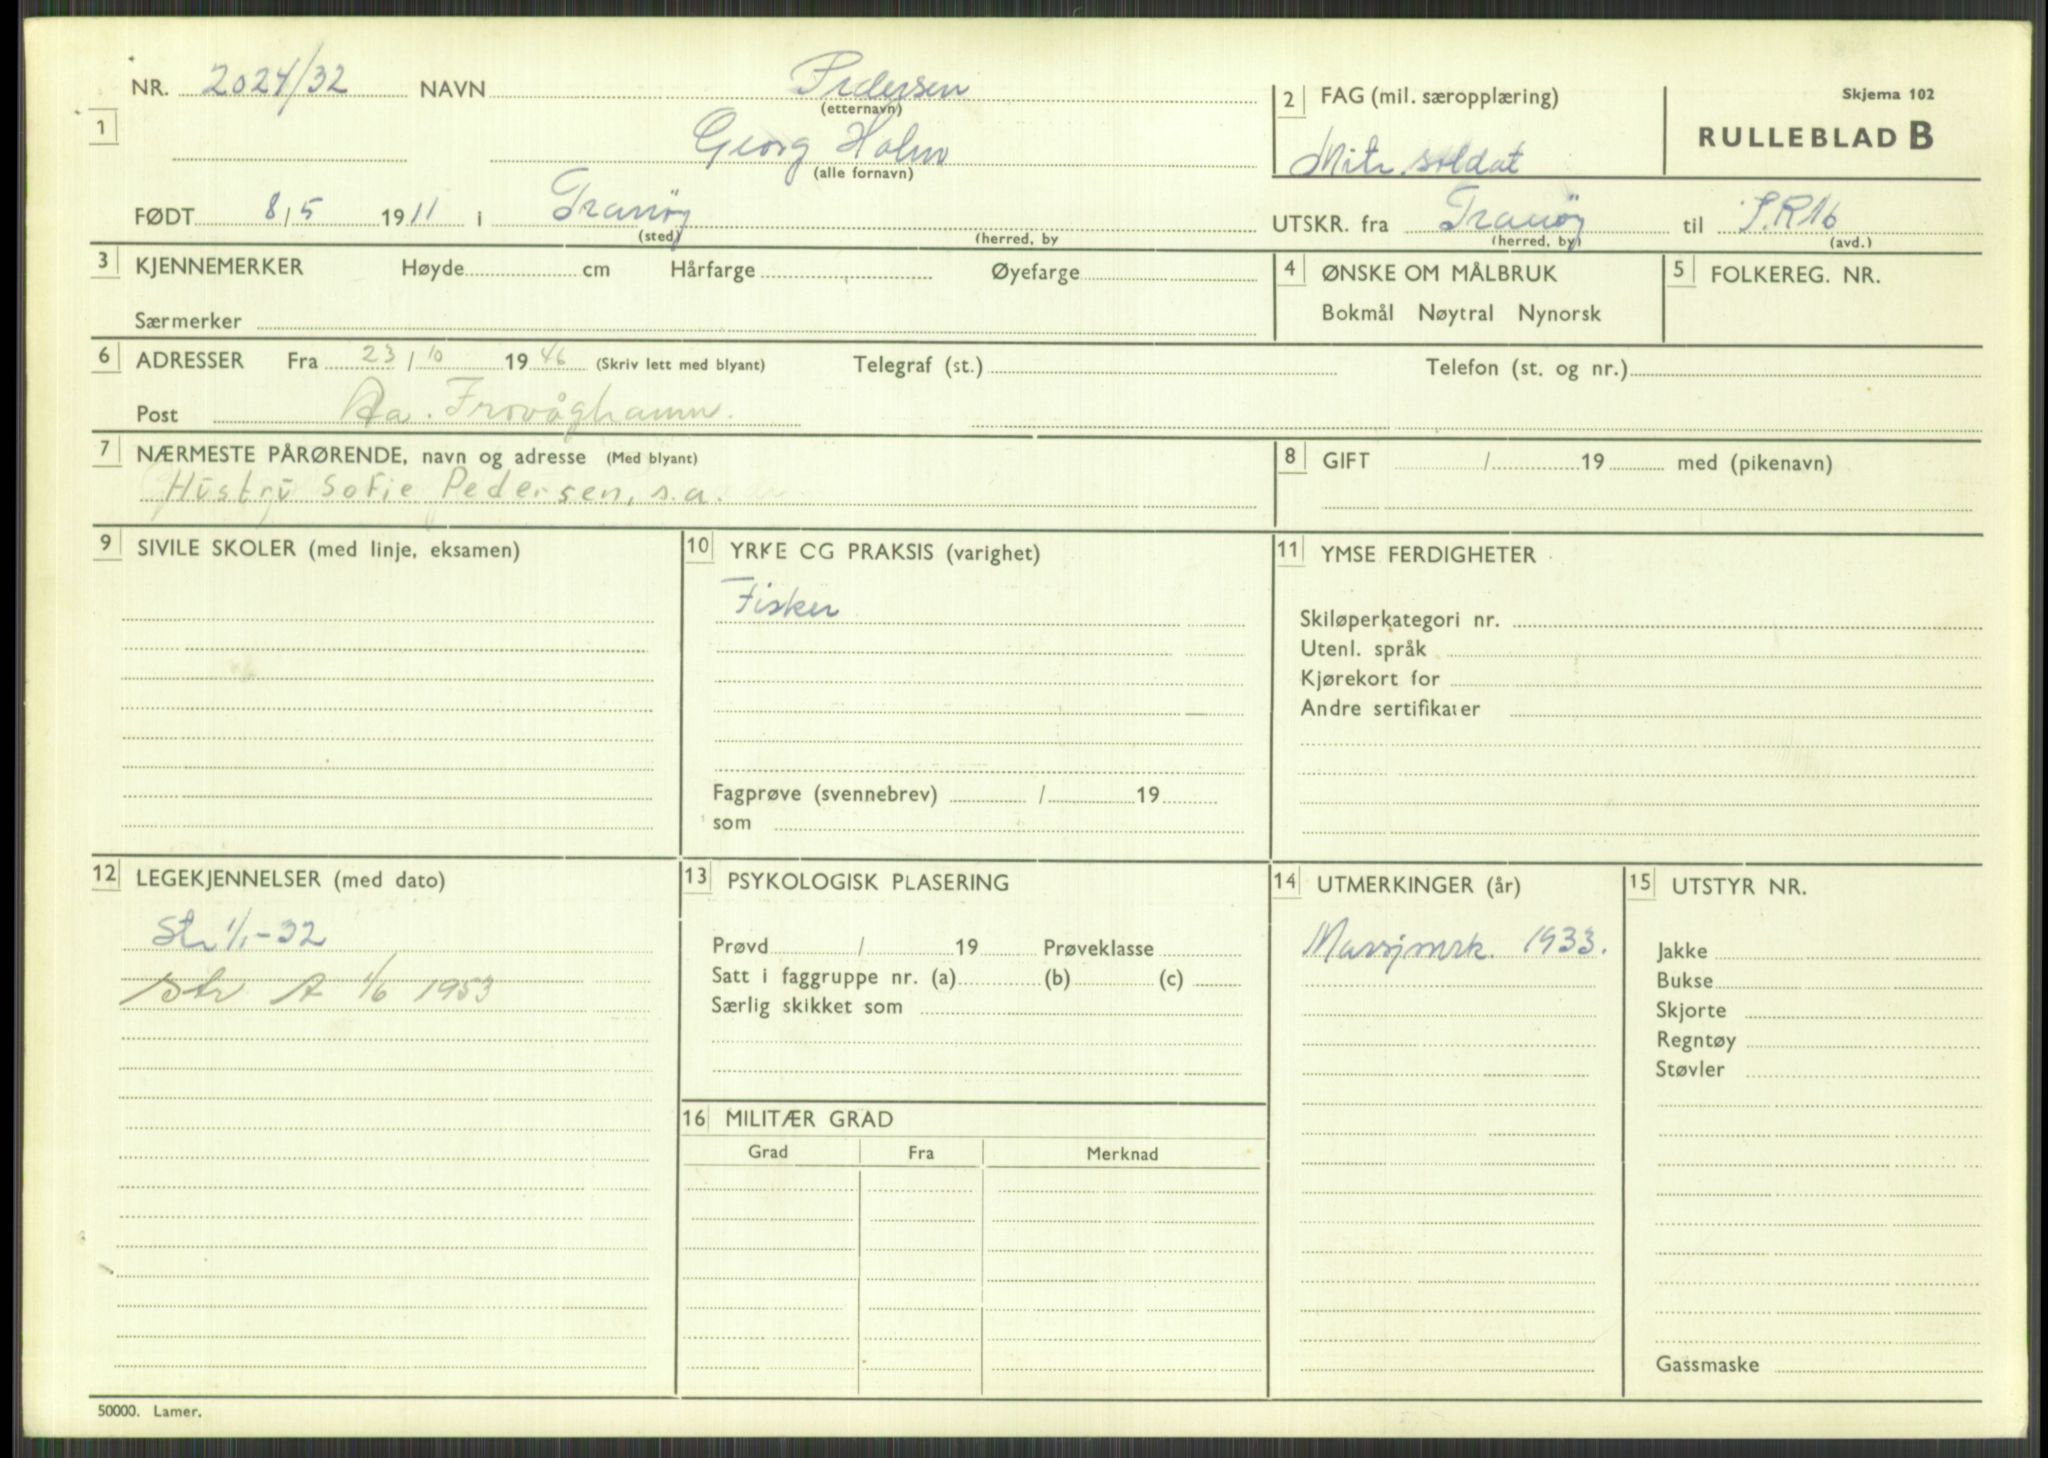 NR. 2024/32 NAVN Pedersen
(etternavn)
Skjema 102
1
Georg Holm
(alle fornavn)
2 FAG (mil. særopplæring)
Mitr. soldat
RULLEBLAD B
FØDT 8/5 1911 i Tranøy
(sted) (herred, by
UTSKR. fra Tranøy til I.R16
(herred, by) (avd.)
3 KJENNEMERKER Høyde cm Hårfarge Øyefarge
Særmerker
4 ØNSKE OM MÅLBRUK
Bokmål Nøytral Nynorsk
5 FOLKEREG. NR.
6 ADRESSER Fra 23/10 1946 (Skriv lett med blyant) Telegraf (st.) Telefon (st. og nr.)
Post Aa. Frovåghamn.
7 NÆRMESTE PÅRØRENDE, navn og adresse (Med blyant)
Hustru Sofie Pedersen, s.a.
8 GIFT / 19 med (pikenavn)
9 SIVILE SKOLER (med linje, eksamen)
10 YRKE CG PRAKSIS (varighet)
Fisker
Fagprøve (svennebrev) / 19
som
11 YMSE FERDIGHETER
Skiløperkategori nr.
Utenl. språk
Kjørekort for
Andre sertifikater
12 LEGEKJENNELSER (med dato)
Str 1/1-32
Str A 1/6 1953
13 PSYKOLOGISK PLASERING
Prøvd / 19 Prøveklasse
Satt i faggruppe nr. (a) (b) (c)
Særlig skikket som
14 UTMERKINGER (år)
Marsjmrk. 1933.
15 UTSTYR NR.
Jakke
Bukse
Skjorte
Regntøy
Støvler
Gassmaske
16 MILITÆR GRAD
Grad Fra Merknad
50000. Lamer.